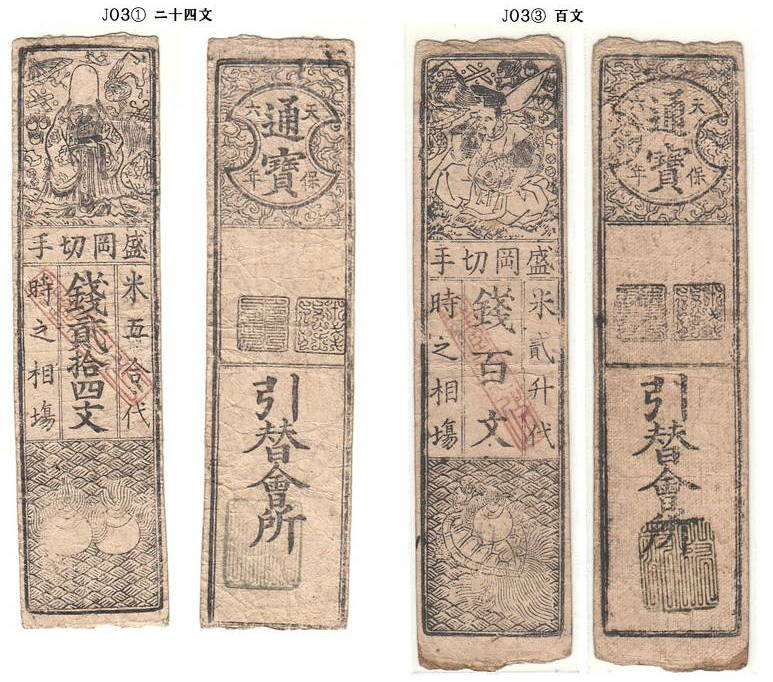 J03① 二十四文
盛岡切手
米五合代
錢貳拾四文
時之相塲
天保六年
通寶
引替會所
J03③ 百文
盛岡切手
米貳升代
錢百文
時之相塲
天保六年
通寶
引替會所